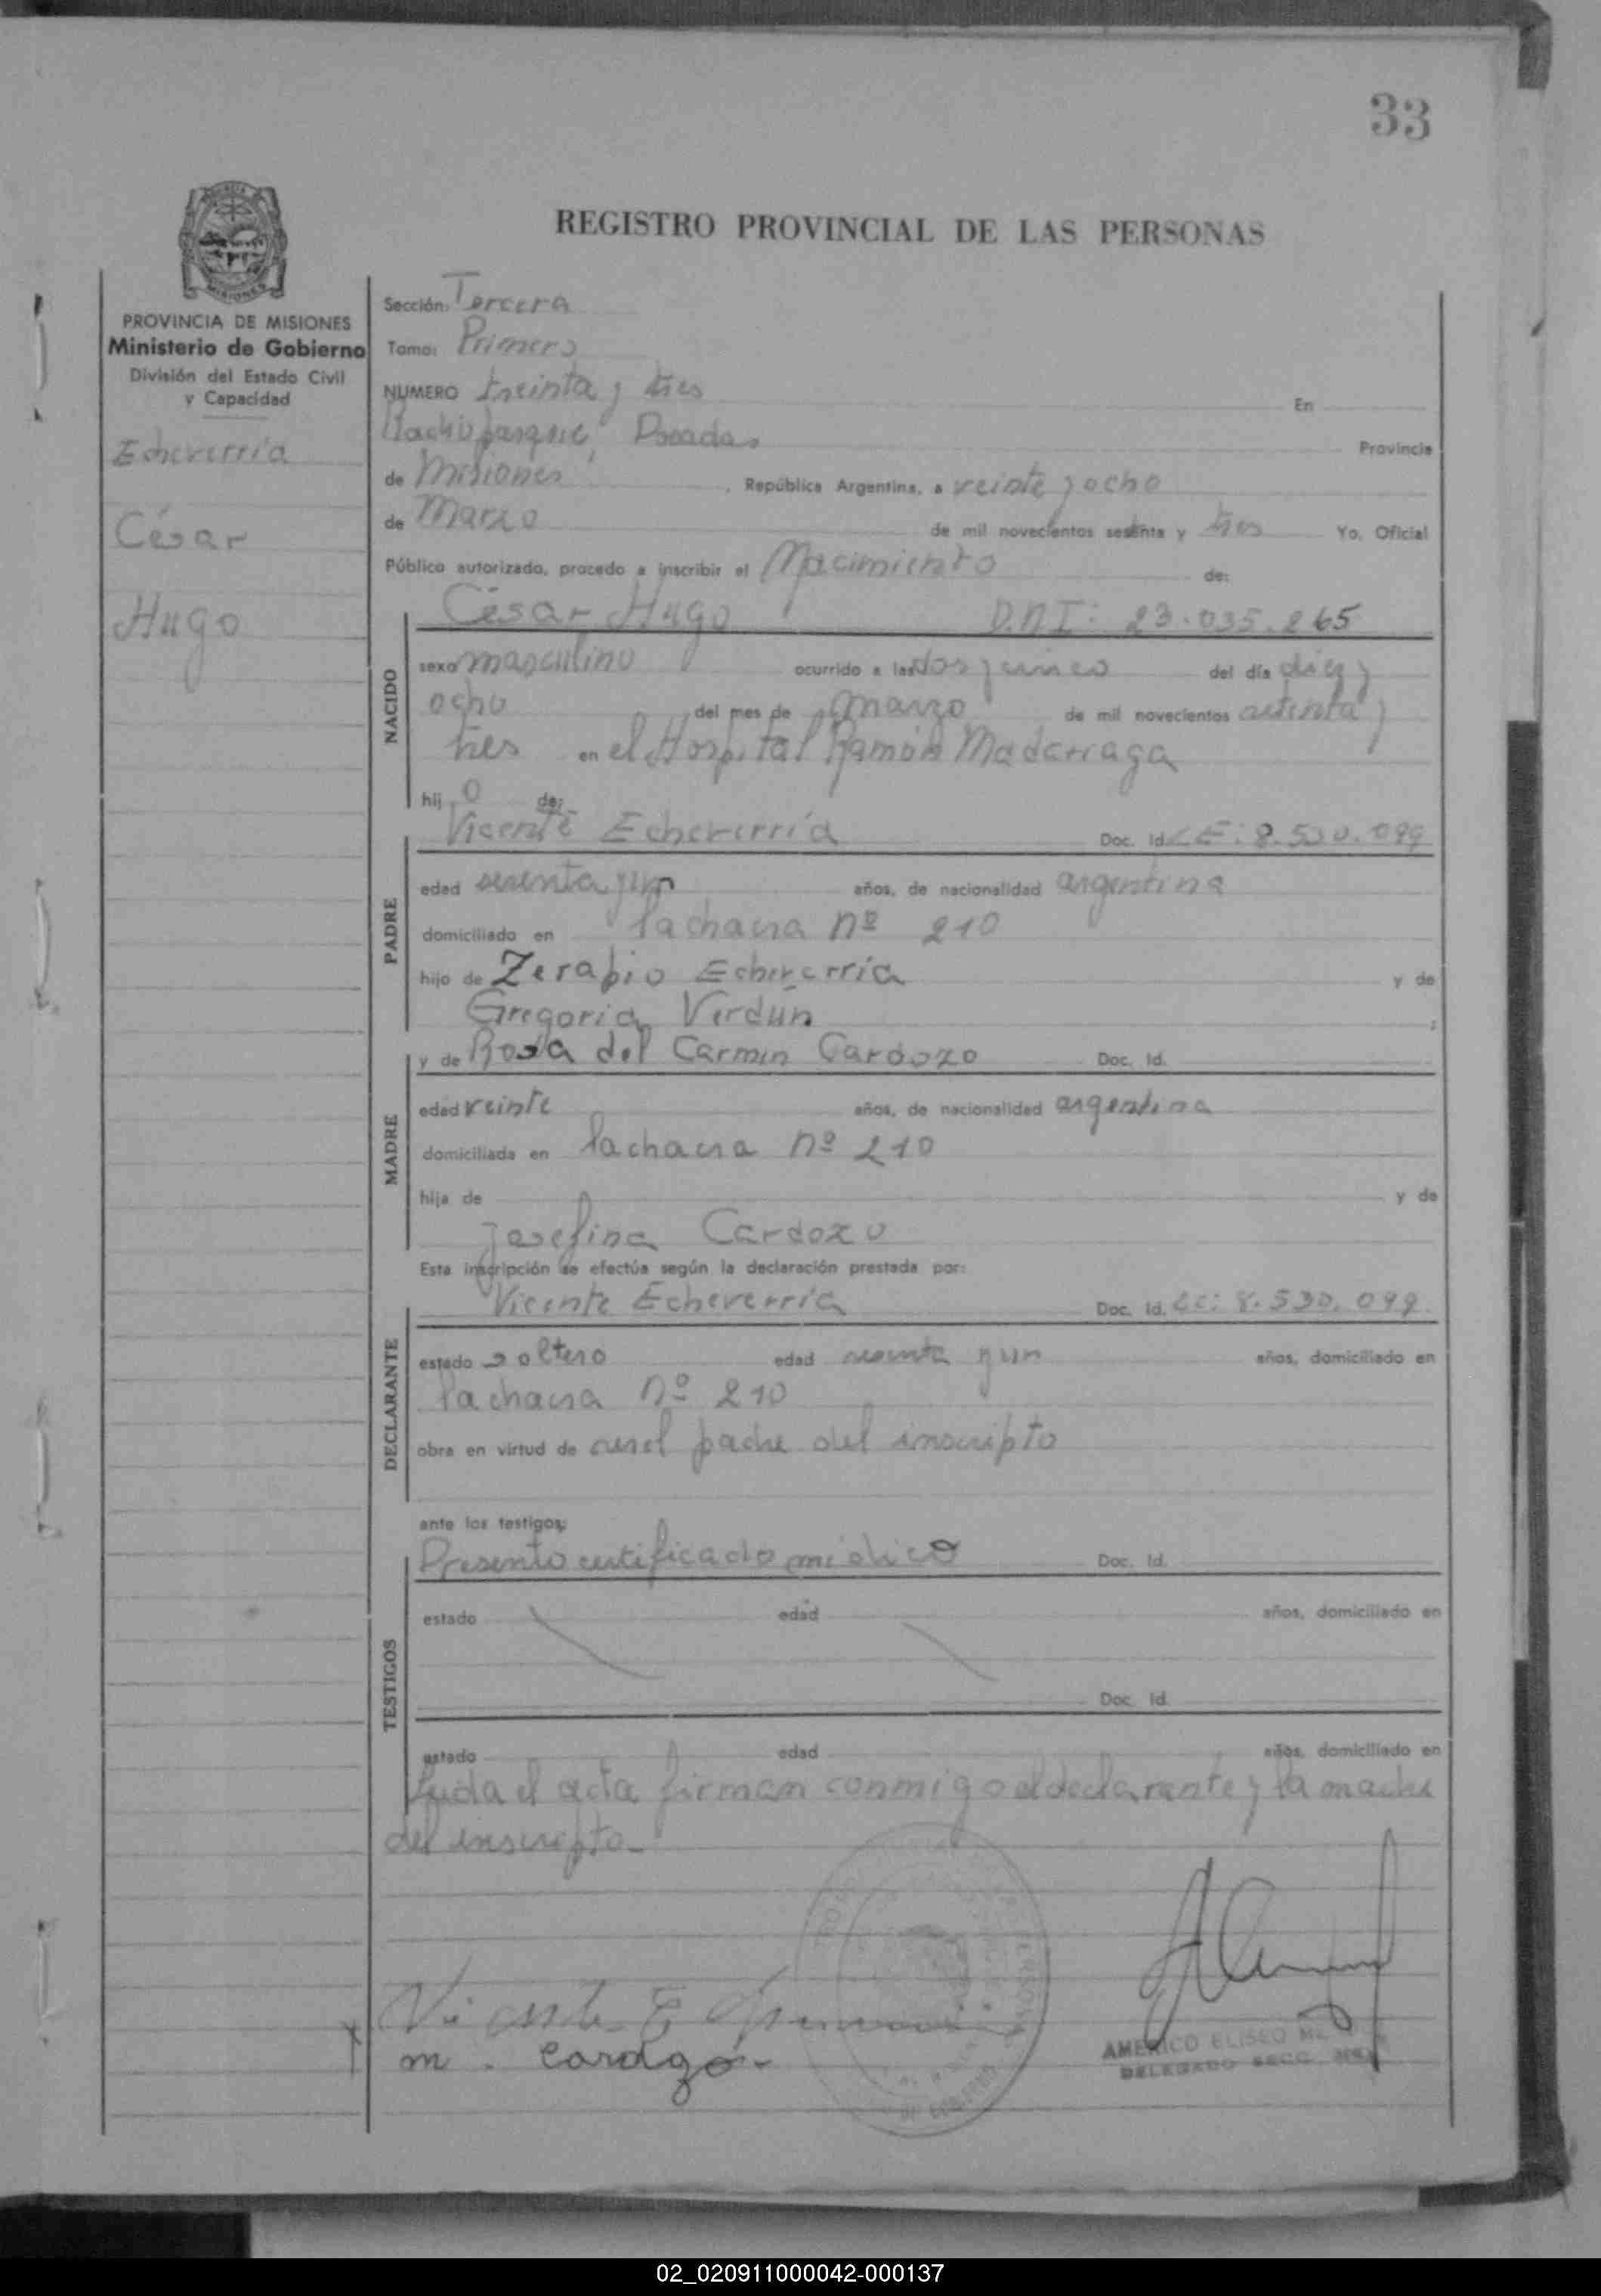 33
REGISTRO PROVINCIAL DE LAS PERSONAS
PROVINCIA DE MISIONES
Ministerio de Gobierno
División del Estado Civil
y Capacidad
Echeverría
César
Hugo
Sección: Tercera
Tomo: Primero
NUMERO treinta y tres En
Posadas Provincia
de Misiones, República Argentina, a veinte y ocho
de Marzo de mil novecientos setenta y tres Yo, Oficial
Público autorizado, procedo a inscribir el Nacimiento de:
César Hugo D.N.I: 23.035.265
NACIDO
sexo masculino ocurrido a las dos y cinco del día diez y
ocho del mes de marzo de mil novecientos setenta y
tres en el Hospital Ramón Madariaga
hij o de:
Vicente Echeverría Doc. Id. LE: 8.530.099
PADRE
edad sesenta y un años, de nacionalidad argentina
domiciliado en la chacra nº 210
hijo de Zerapio Echeverría y de
Gregoria Verdún ;
y de Rosa del Carmen Cardozo Doc. Id.
MADRE
edad veinte años, de nacionalidad argentina
domiciliada en la chacra nº 210
hija de y de
Josefina Cardozo
Esta inscripción se efectúa según la declaración prestada por:
Vicente Echeverría Doc. Id. LE: 8.530.099
DECLARANTE
estado soltero edad sesenta y un años, domiciliado en
la chacra nº 210
obra en virtud de ser el padre del inscripto
ante los testigos:
Presento certificado médico Doc. Id.
TESTIGOS
estado edad años, domiciliado en
Doc. Id.
estado edad años, domiciliado en
Leida el acta firman conmigo el declarante y la madre
del inscripto
Vicente
m. Cardozo
AMERICO ELISEO
DELEGADO SECC.
02_020911000042-000137